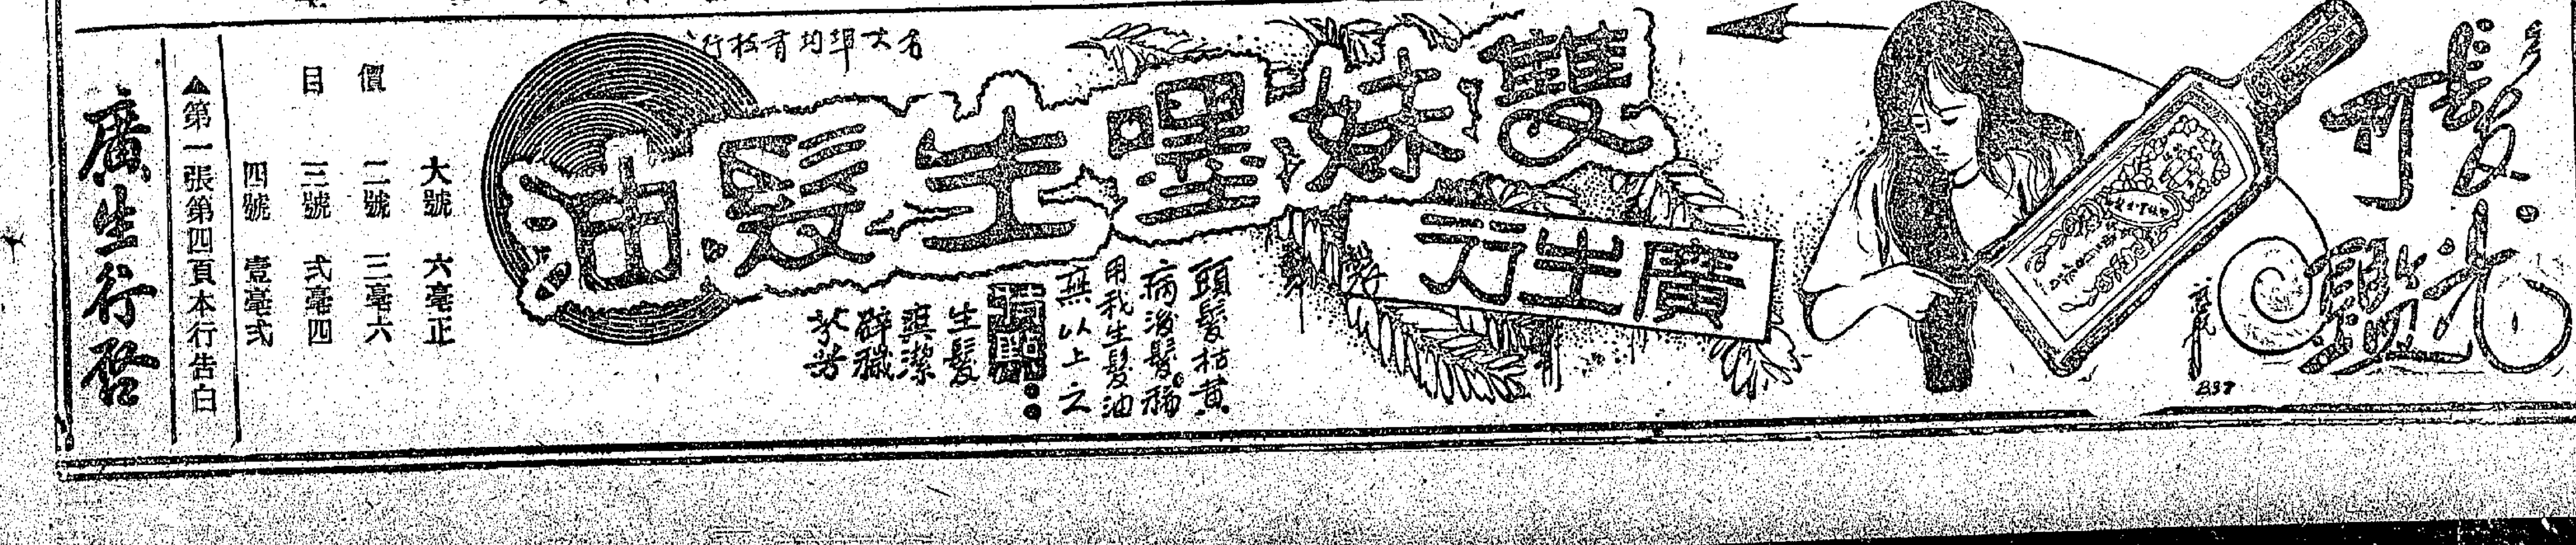 髮可
光
雙妹嚜生髮油
廣生行
各大埠均有枝行
頭髮枯黃
病後髮稀
用我生髮油
無以上之
生髮
潔
辟穢
芬芳
價目
大號 六毫正
二號 三毫六
三號 弍毫四
四號 壹毫弍
▲第一張第四頁本行告白
廣生行啓